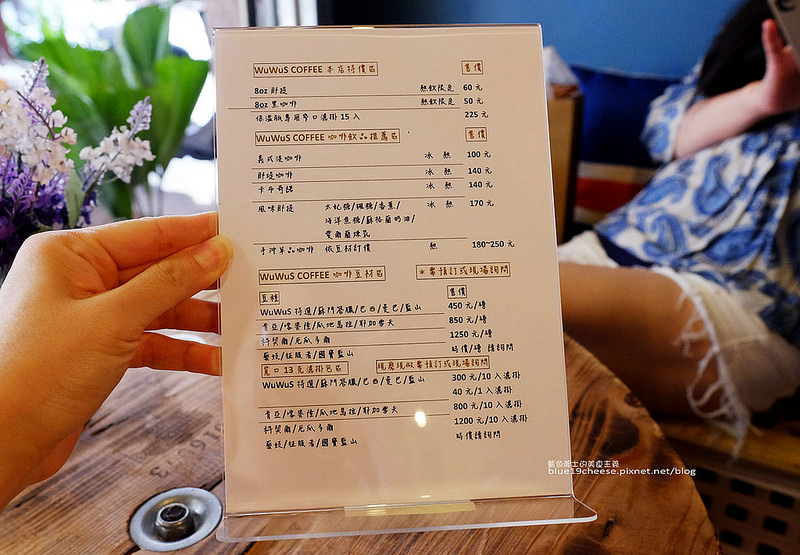 WuWuS COFFEE 本店特價區 售價
8oz 那提 熱飲限定 60 元
8oz 黑咖啡 熱飲限定 50 元
保溫瓶專用寬口濾掛 15 入 225 元
WuWuS COFFEE 咖啡飲品推薦區 售價
義式濃咖啡 冰 熱 100 元
那堤咖啡 冰 熱 140 元
卡布奇諾 冰 熱 140 元
風味那提 太妃糖/楓糖/香蕉/ 冰 熱 170 元
海洋焦糖/蘇格蘭奶油/
愛爾蘭煉乳
手沖單品咖啡 依豆材訂價 熱 180~250 元
WuWuS COFFEE 咖啡豆材區 ＊需預訂或現場詢問
豆種 售價
WuWuS 特選/蘇門答臘/巴西/曼巴/藍山 450 元/磅
肯亞/喀麥隆/瓜地馬拉/耶加雪夫 850 元/磅
科契爾/厄瓜多爾 1250 元/磅
藝妓/征服者/國寶藍山 時價/磅 請詢問
寬口 13 克濾掛區 現磨現做需預訂或現場詢問
WuWuS 特選/蘇門答臘/巴西/曼巴/藍山 300 元/10 入濾掛
40 元/1 入濾掛
肯亞/喀麥隆/瓜地馬拉/耶加雪夫 800 元/10 入濾掛
科契爾/厄瓜多爾 1200 元/10 入濾掛
藝妓/征服者/國寶藍山 時價請詢問
藍色起士的美食主義
blue19cheese.pixnet.net/blog